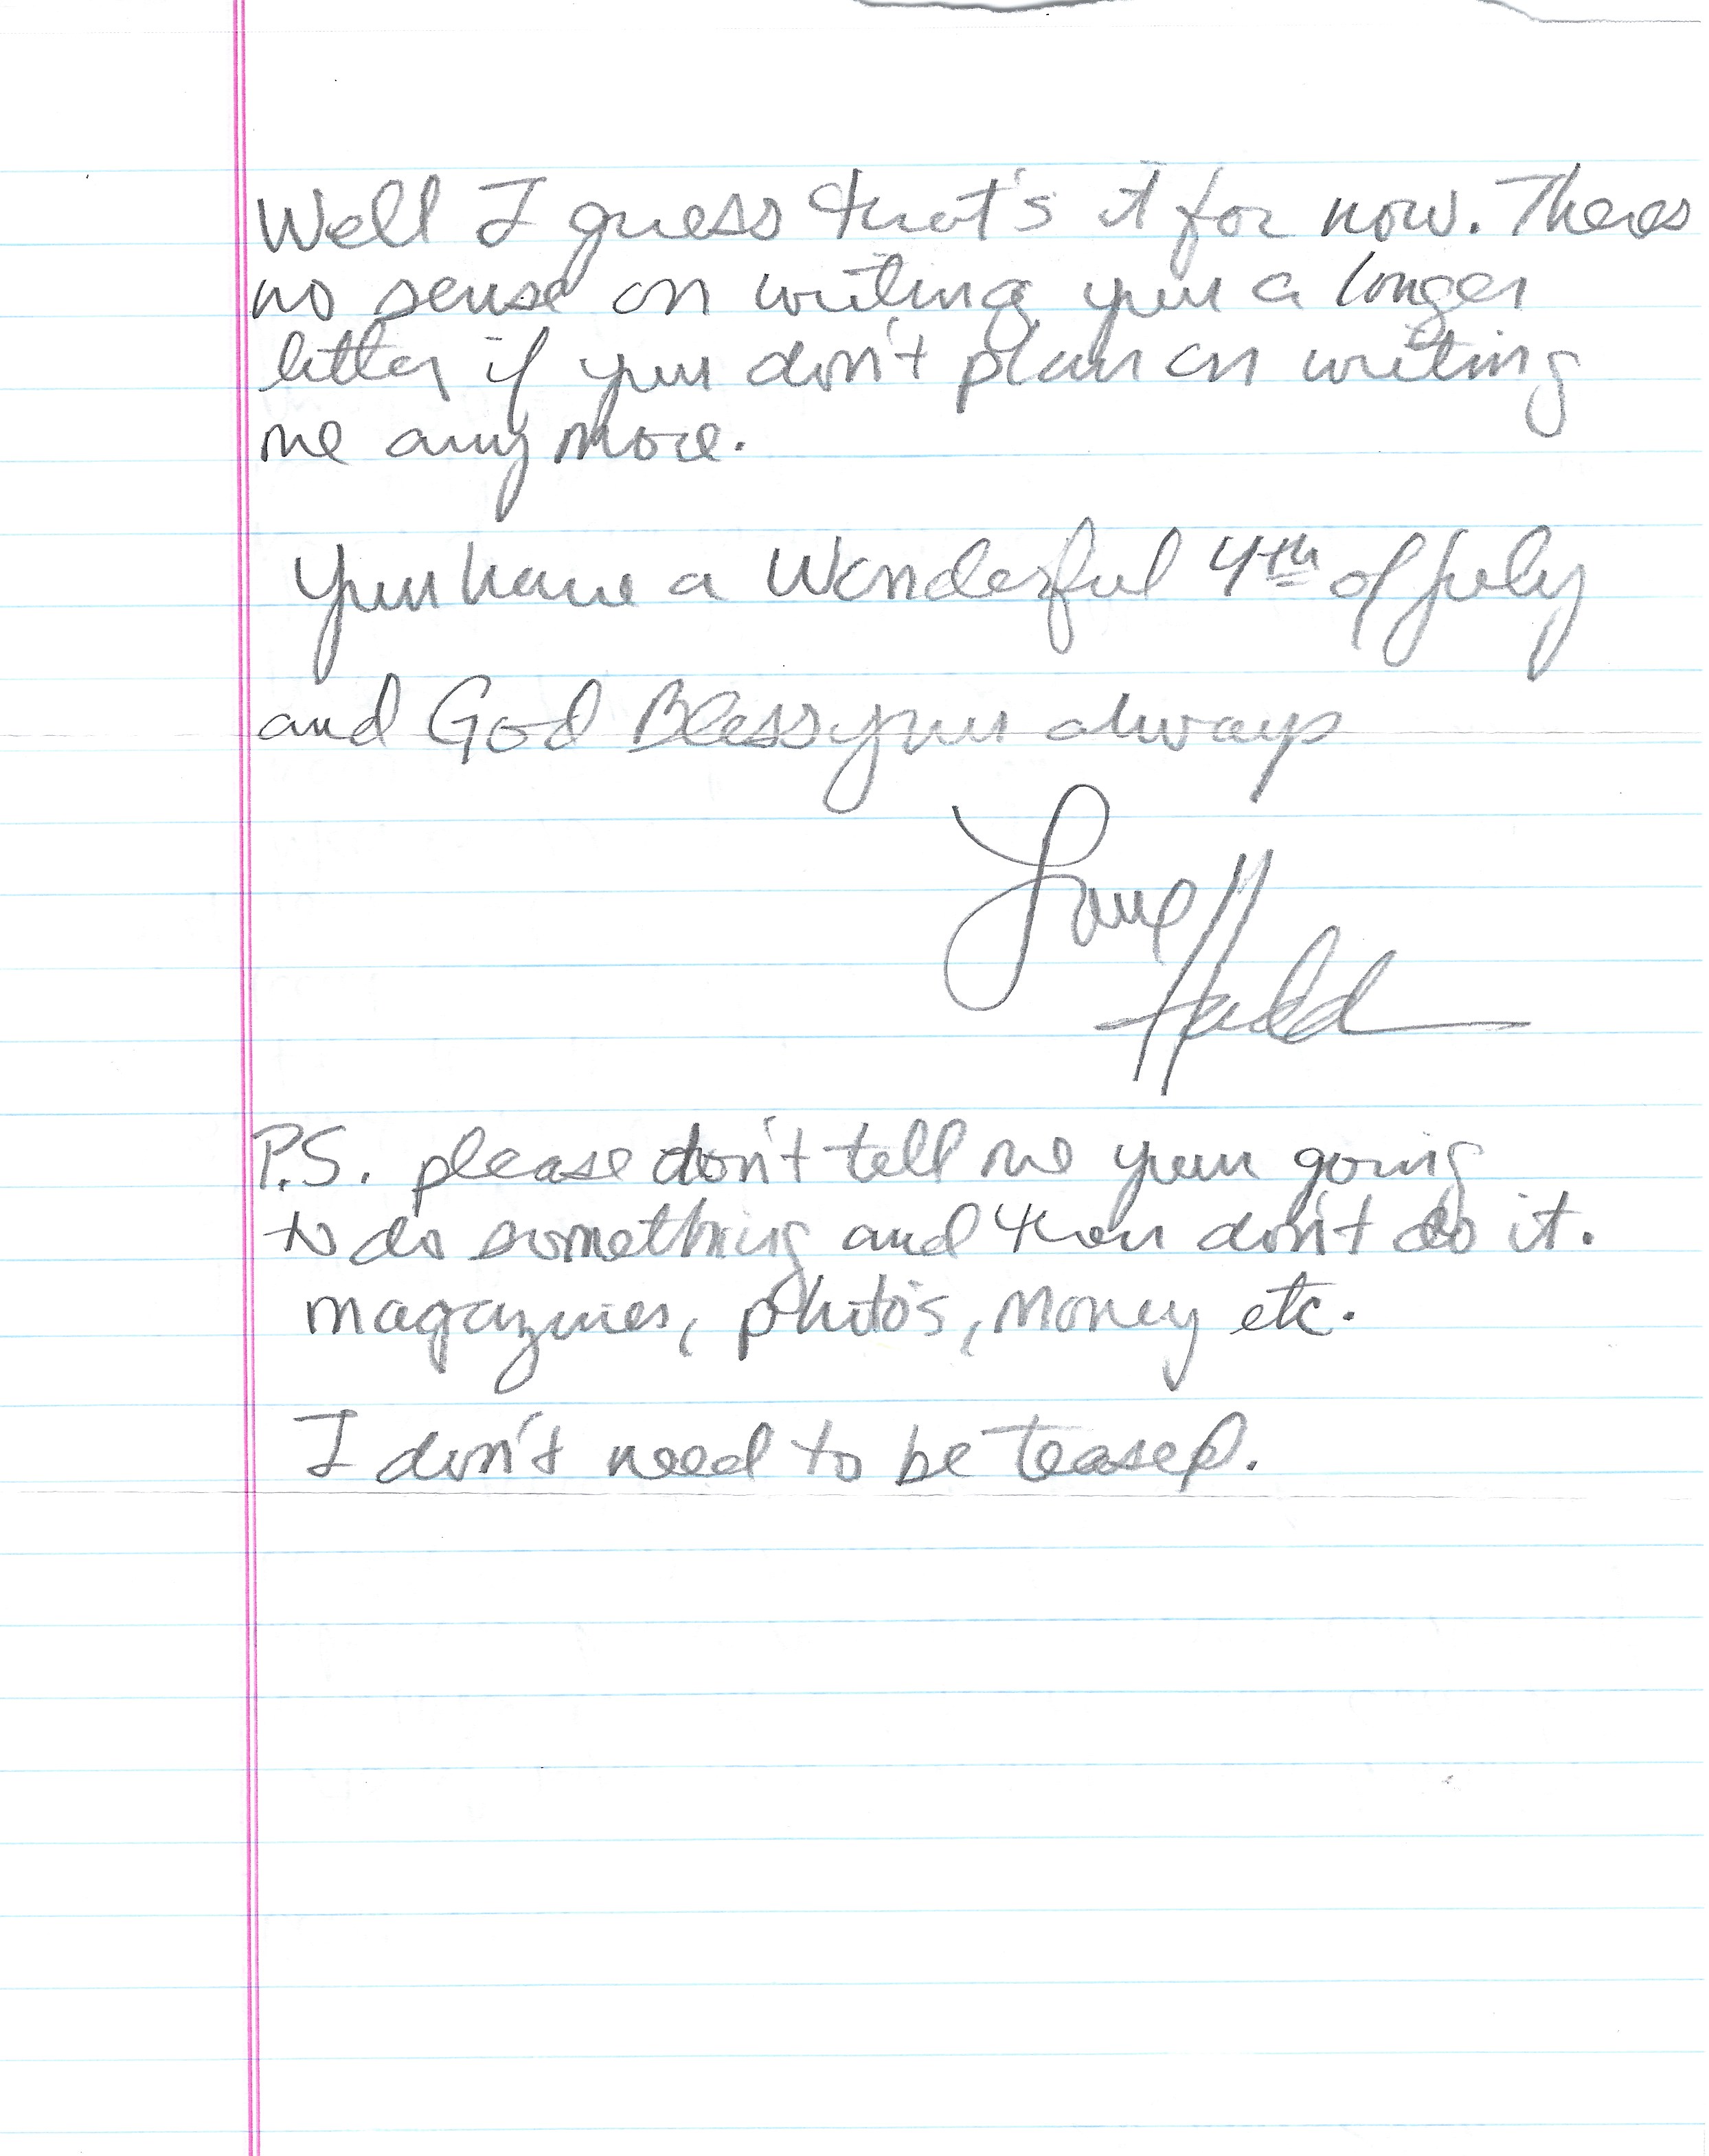 Well I guess that's it for now. Theres
no sense on writing you a longer
letter if you don't plan on writing
me any more.
You have a Wonderful 4th of July
and God Bless you always
Love
P.S. please don't tell me your going
to do something and then don't do it.
magazines, photo's, money etc.
I don't need to be teased.